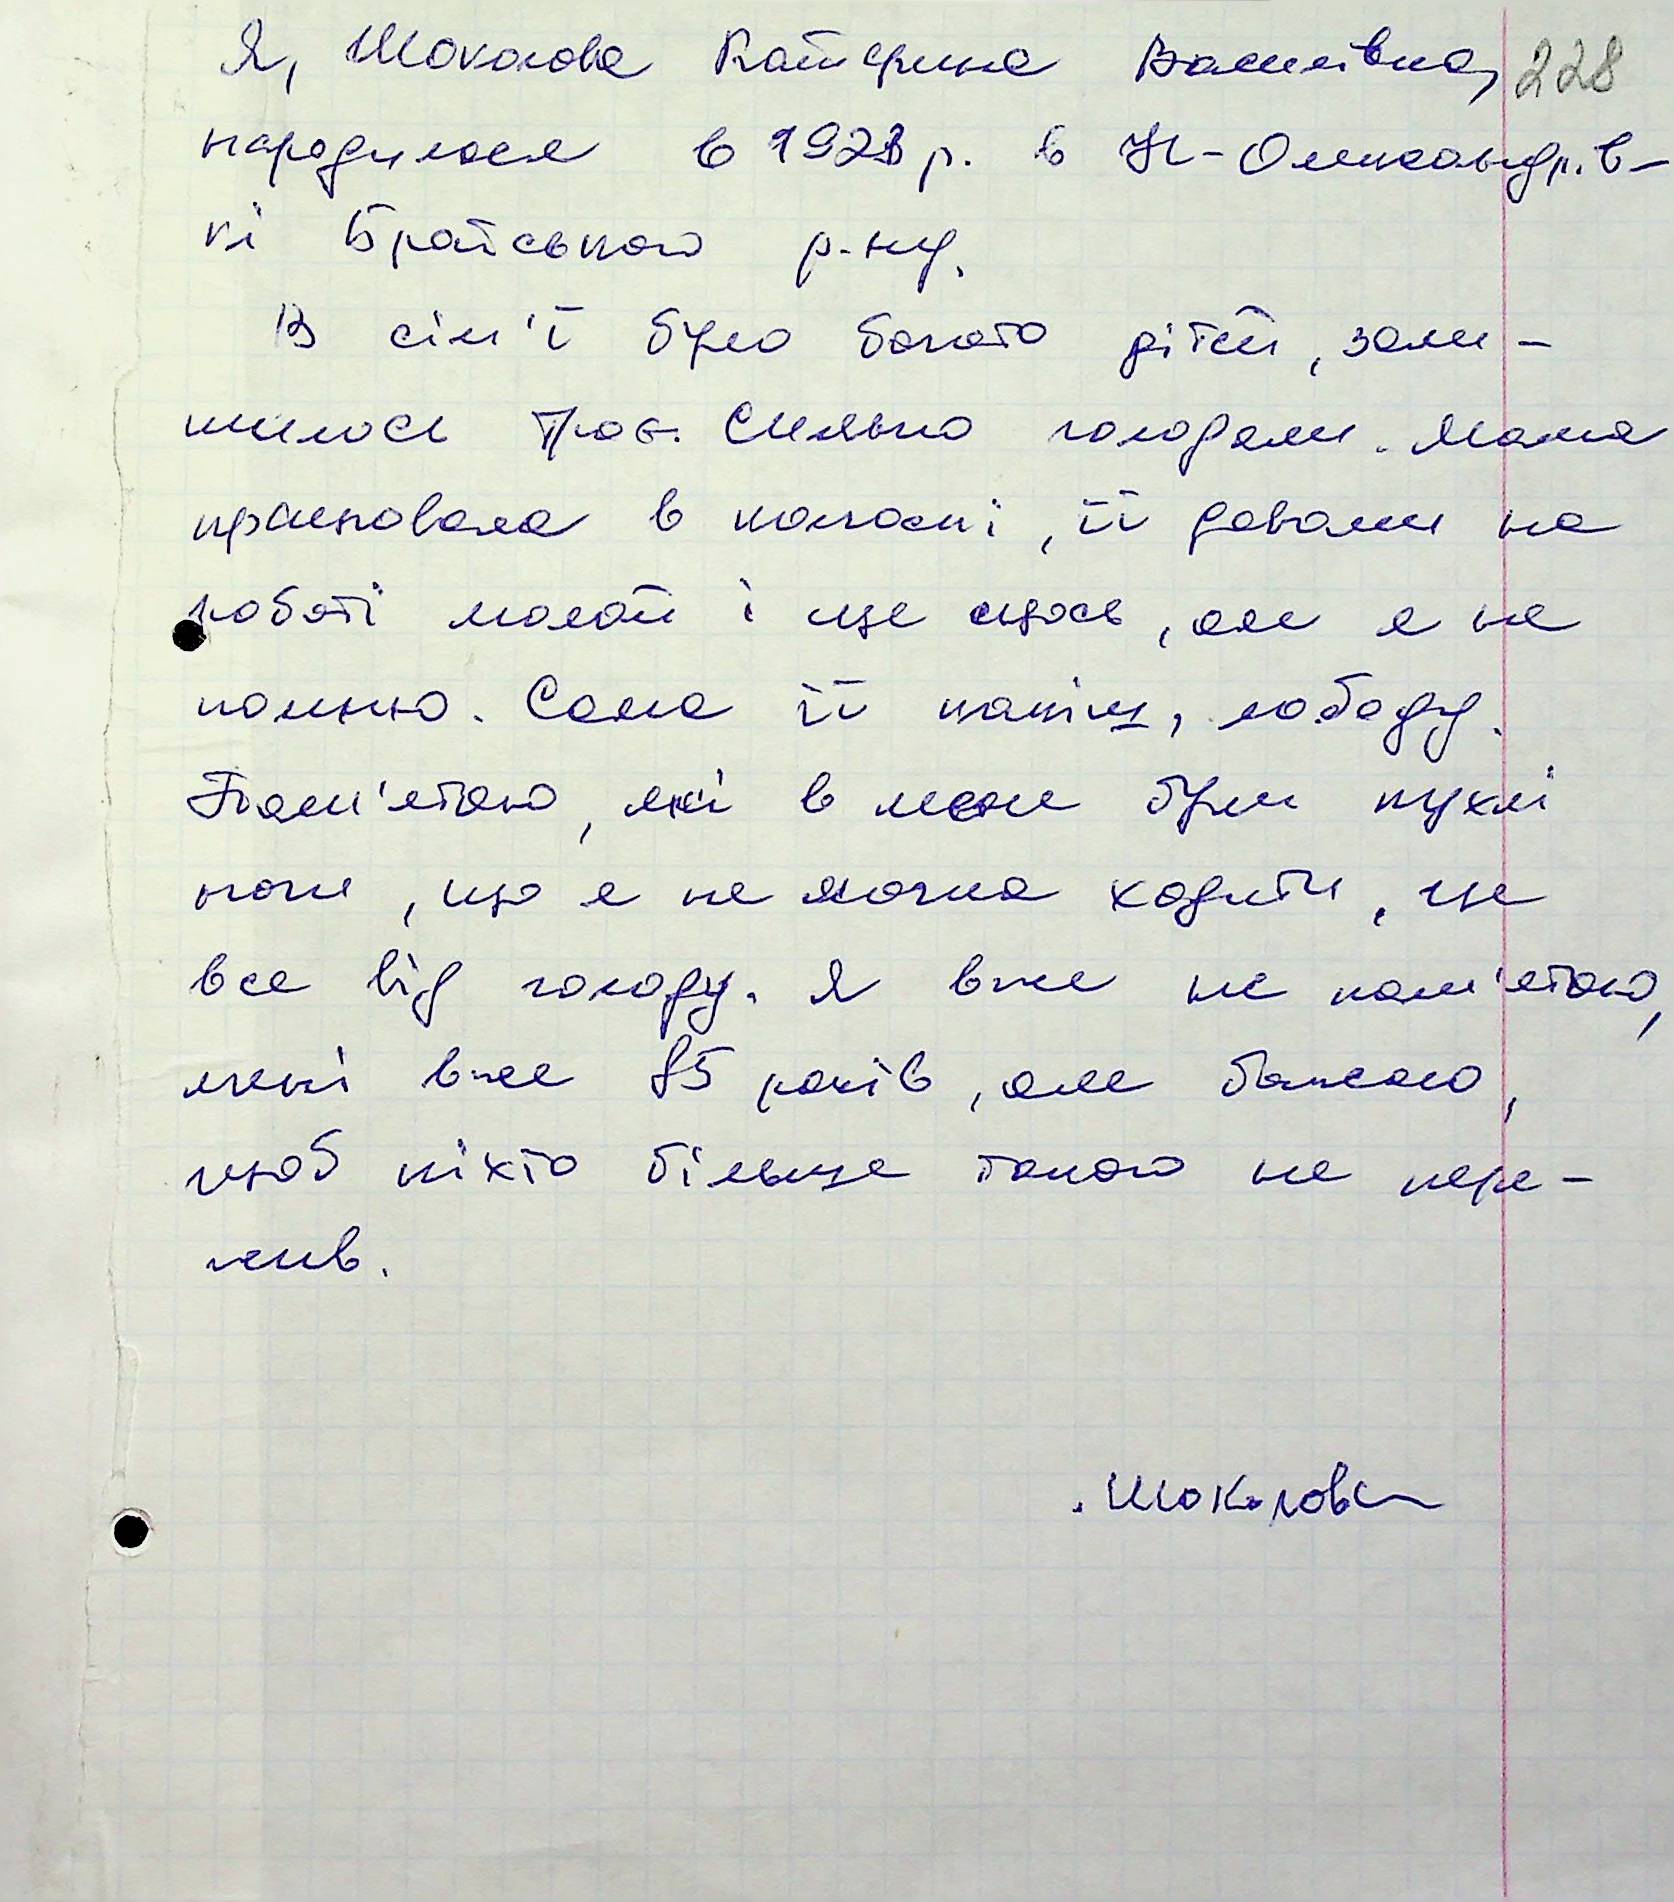 Я, Шоколова Катерина Василівна, 228
народилася в 1928 р. в Н-Олександрів-
кі Братського р-ну.
В сім'ї було багато дітей, зали-
шилось троє. Сильно голодали. Мама
працювала в колгоспі, її давали на
роботі малай і ще щось, але я не
помню. Сама їла качін, лободу.
Пам'ятаю, які в мене були пухлі
ноги, що я не могла ходити, це
все від голоду. Я вже не пам'ятаю,
мені вже 85 років, але бажаю,
щоб ніхто більше такого не пере-
жив.
Шоколова